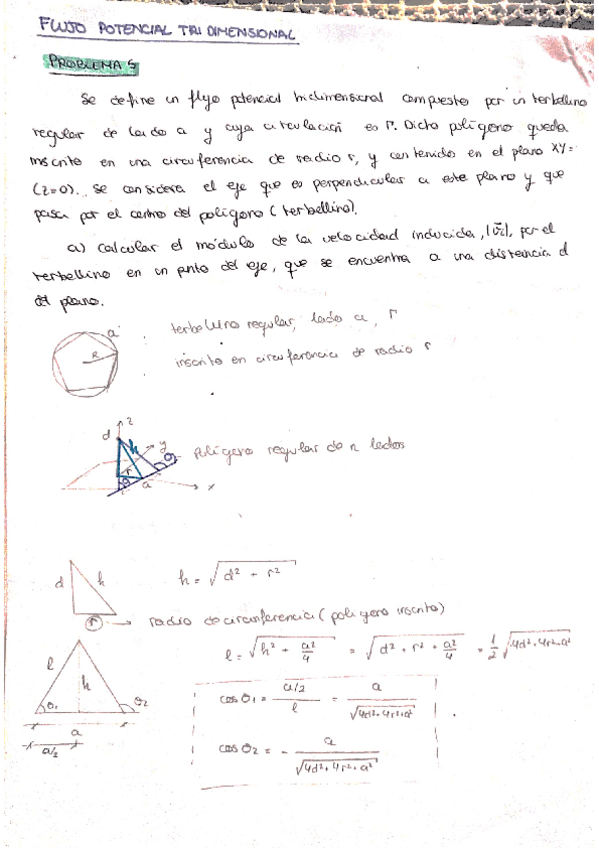 FLUJO POTENCIAL TRIDIMENSIONAL
PROBLEMA 5
Se define un flujo potencial tridimensional compuesto por un torbellino
regular de lado a y cuya circulación es Γ. Dicho polígono queda
inscrito en una circunferencia de radio r, y contenido en el plano XY=
(z=0). Se considera el eje que es perpendicular a este plano y que
pasa por el centro del polígono (torbellino).
a) calcular el módulo de la velocidad inducida, |v⃗z|, por el
torbellino en un punto del eje, que se encuentra a una distancia d
del plano.
a
R
torbellino regular, lado a, Γ
inscrito en circunferencia de radio r
d
z
h
y
r
a
x
polígono regular de n lados
d
h
h = √(d² + r²)
r → radio de circunferencia (polígono inscrito)
l
h
θ1
θ2
a
a/2
l = √(h² + a²/4) = √(d² + r² + a²/4) = 1/2 √(4d²+4r²+a²)
cos θ1 = (a/2)/l = a/√(4d²+4r²+a²)
cos θ2 = - a/√(4d²+4r²+a²)